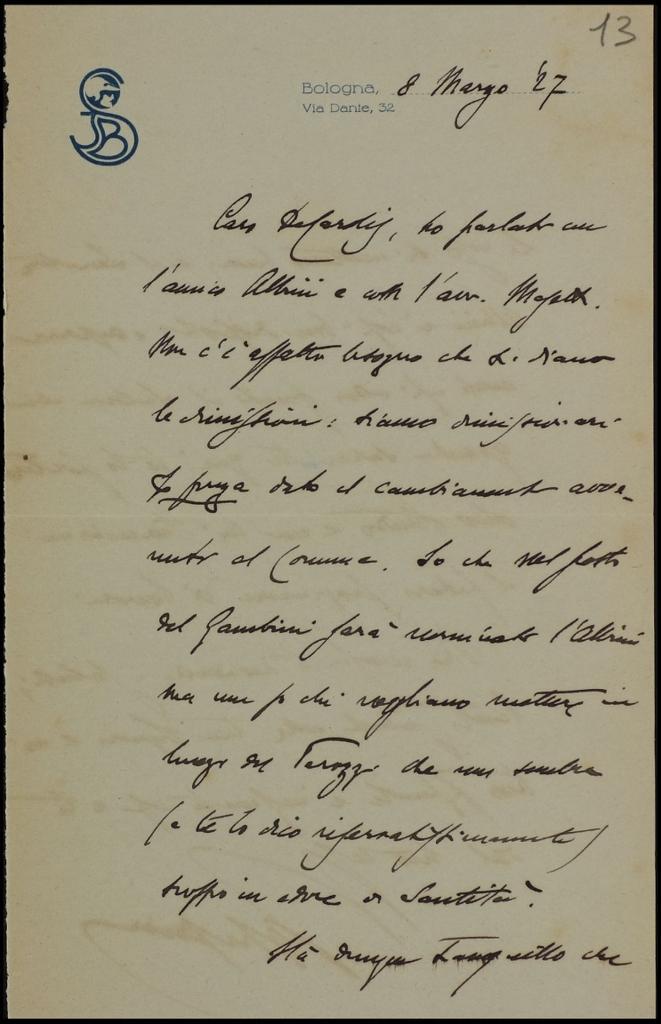 13
Bologna, 8 Marzo '27
Via Dante, 32
Caro De Carolis, ho parlato con
l'amico Albini e coll l'avv.
Non c'è affatto bisogno che si diano
le dimissioni: siamo dimissionari
di forza dato il cambiamento avve-
nuto al Comune. So che nel posto
del Gambini sarà nominato l'Albini
ma non so chi vogliano mettere in
luogo del Tarozzi che non sembra
(e te lo dico riservatissimamente)
troppo in odore di Santità.
Stà dunque tranquillo che